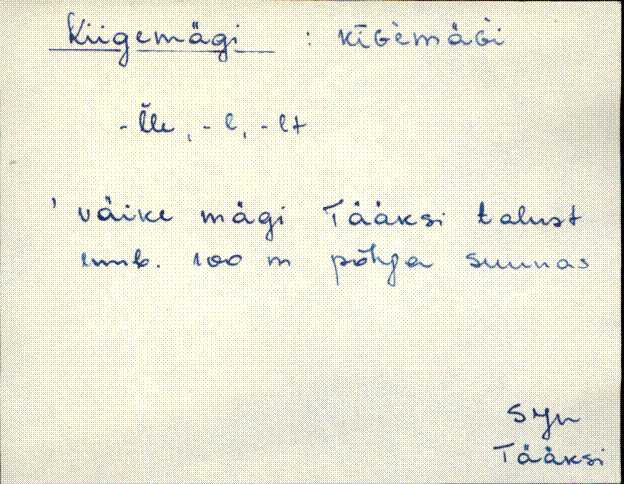 Kiigemägi : kīGèmäGì
-ĭle, -l, -lt
' väike mägi Tääksi talust
umb. 100 m põhja suunas
SJn
Tääksi